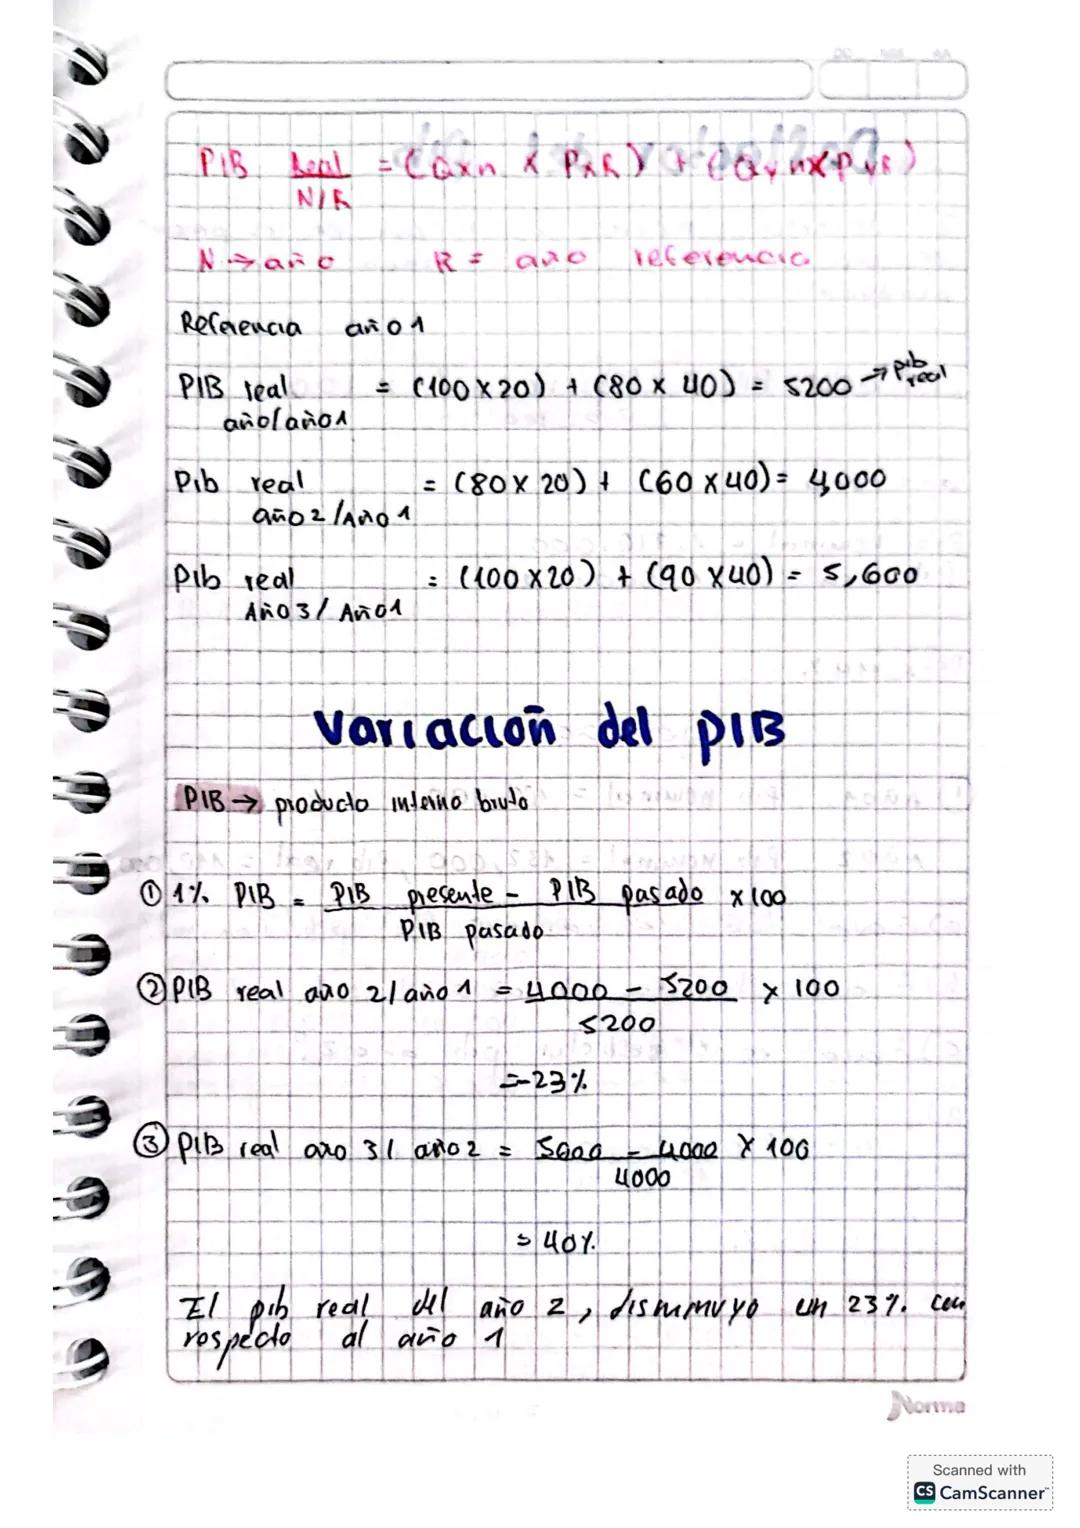 PIB Real = (Qxn x PxR) + (Qyn x PyR)
N/R
N → año R = año referencia
Referencia año 1
PIB real = (100 x 20) + (80 x 40) = 5200 → pib real
año1año1
Pib real = (80 x 20) + (60 x 40) = 4,000
año 2/Año 1
Pib real = (100 x 20) + (90 x 40) = 5,600
Año 3/ Año1
Variacioñ del PIB
PIB → producto interno bruto
① 1% PIB = PIB presente - PIB pasado x 100
PIB pasado
② PIB real año 2/ año 1 = 4000 - 5200 x 100
5200
= -23%
③ PIB real año 3/ año 2 = 5600 - 4000 x 100
4000
= 40%
El pib real del año 2, disminuyo un 23% con
respecto al año 1
Norma
Scanned with
CS CamScanner